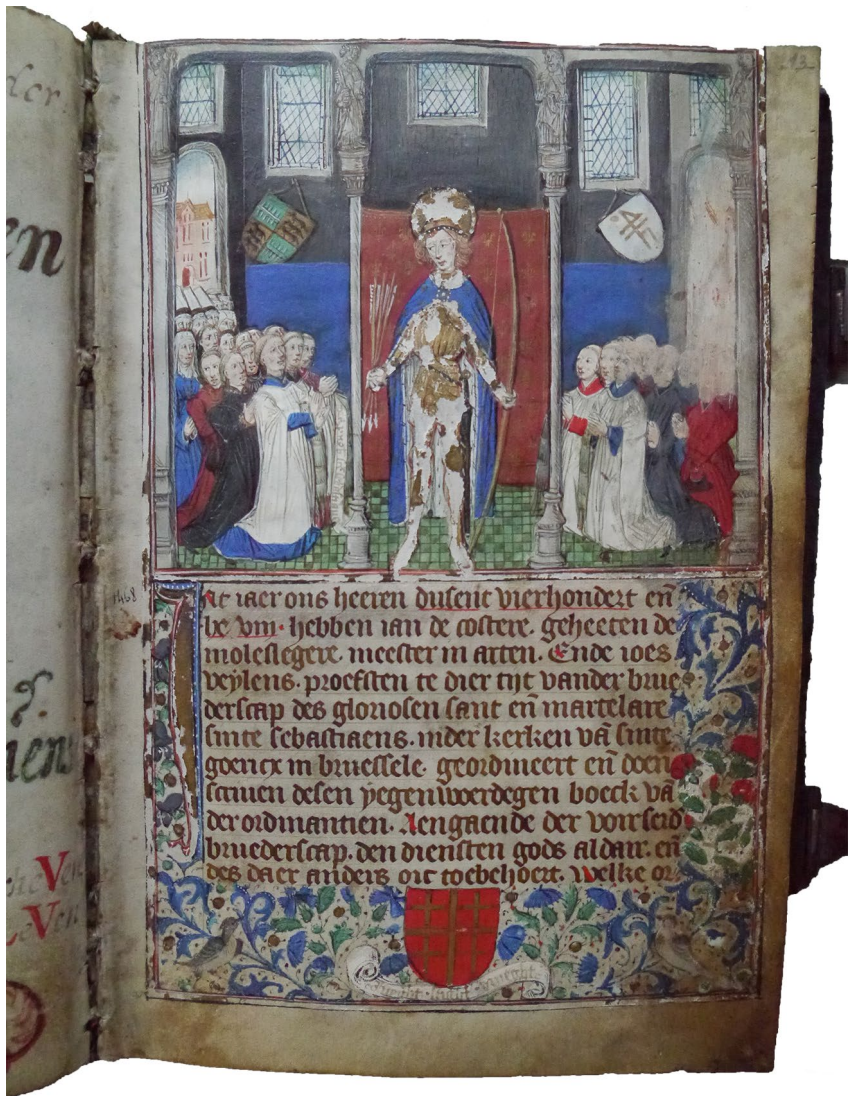 der
en
men
Ven
Ven
13
1468
Int iaer ons heeren dusent vierhondert en̄
lxviij· hebben ian de costere· geheeten de
moleslegere· meester in arten· Ende ioes
veylens· proefsten te dier tijt vander brue
derscap des gloriosen sant en̄ martelare
sinte sebastiaens· inder kerken vā sinte
goericx in bruessele· geordineert en̄ doen
scriuen desen yegenwoerdegen boeck vā
der ordinantien· Aengaende der voirseid
bruederscap· den diensten gods aldair· en̄
des daer anders oit toebehoert· Welke or